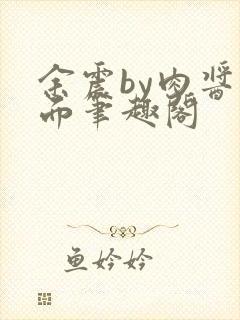 余震by肉酱
而笔趣阁
鱼妗妗